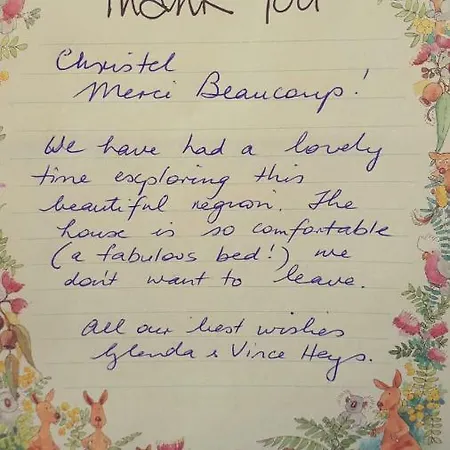 Thank You
Christel
Merci Beaucoup!
We have had a lovely
time exploring this
beautiful region. The
house is so comfortable
(a fabulous bed!) we
don't want to leave.
All our best wishes
Glenda & Vince Heys.